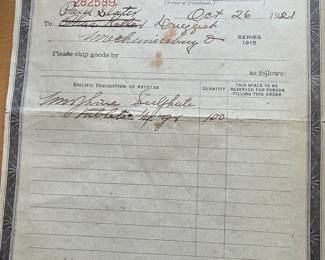 282599
(Name of Purchaser)
Oct 26 1921
To Druggist
Mechanicsburg O
SERIES
1915
Please ship goods by
as follows:
SPECIFIC DESCRIPTION OF ARTICLES
QUANTITY
THIS SPACE TO BE
RESERVED FOR PERSON
FILLING THIS ORDER
Morphine Sulphate
Tablets 1/4 grs 100